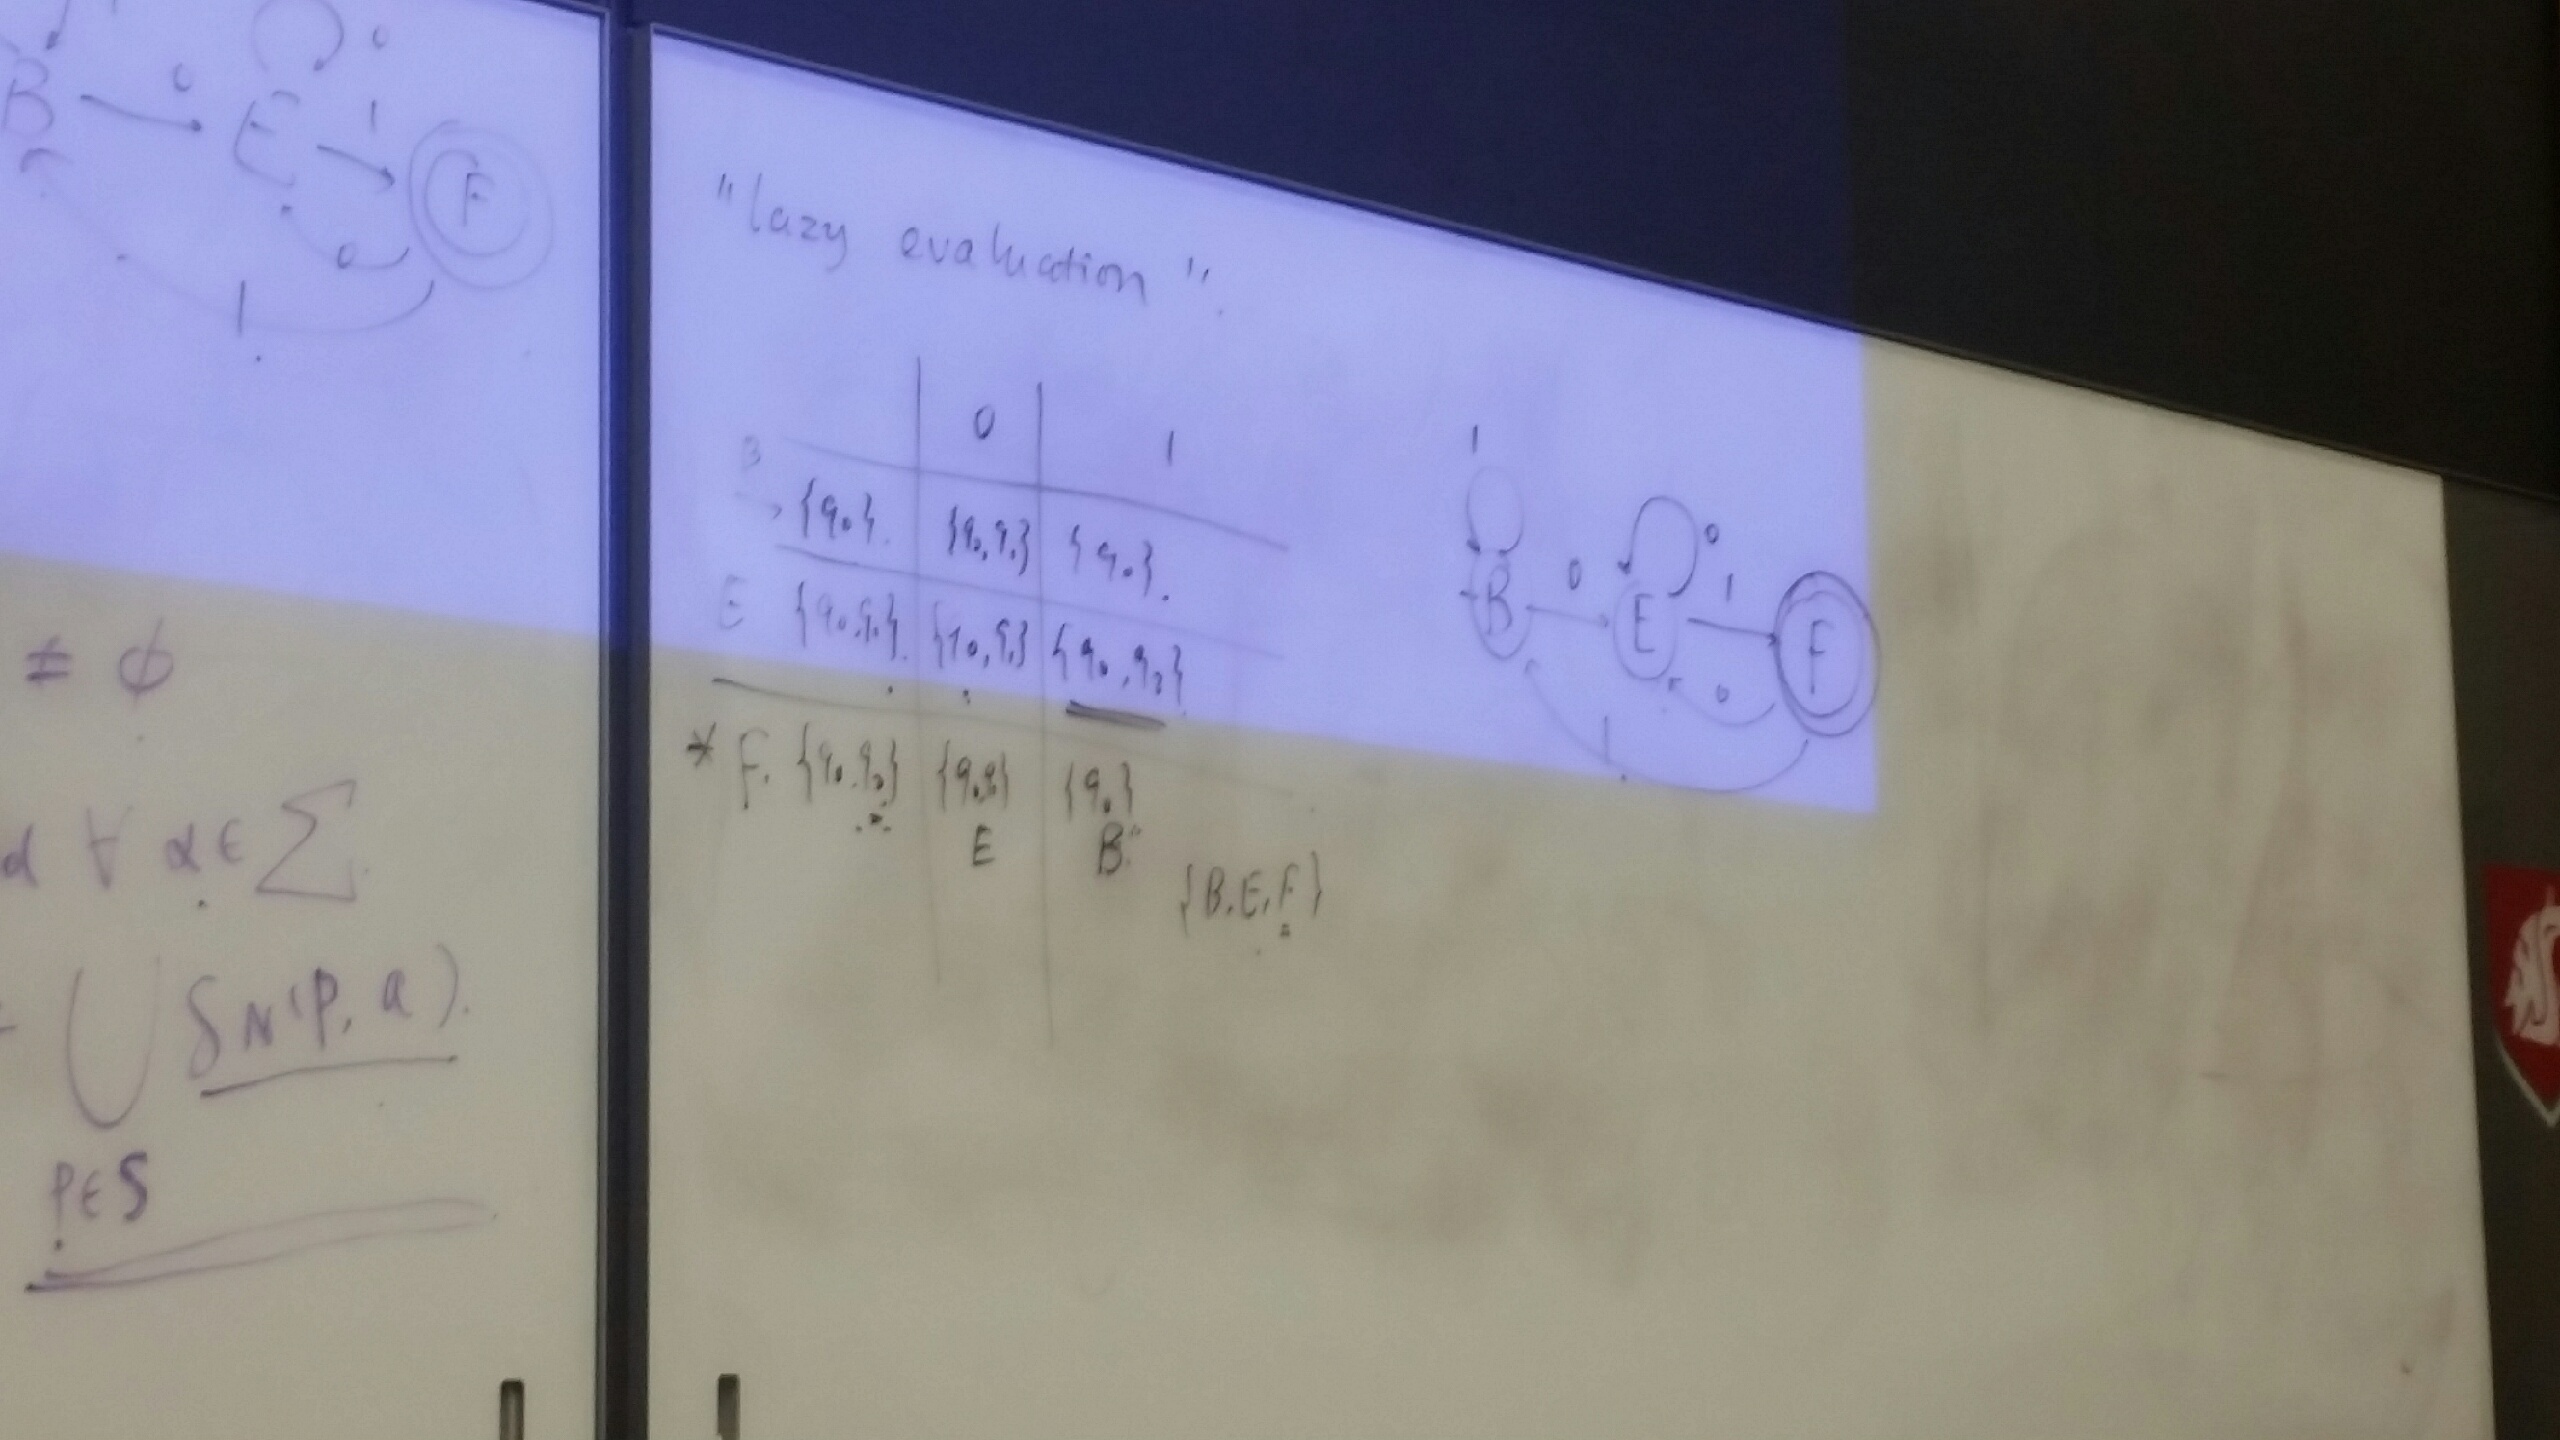 B 0 E 0 1 F
0
1
≠ ϕ
d ∀ α ∈ Σ
⋃ δN(p, a).
P∈S
"lazy evaluation".
0 1
B → {q0}. {q0,q1} {q0}.
E {q0,q1}. {q0,q1} {q0,q2}
* F. {q0,q2} {q0,q1} {q0}
E B
{B,E,F}
1
0
B 0 E 1 F
0
1